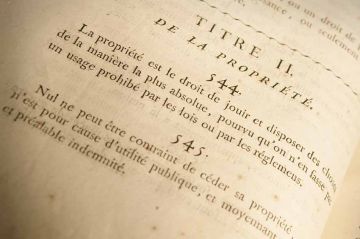 ou un droit de
ance, ou seulement
TITRE II.
DE LA PROPRIÉTÉ.
544.
La propriété est le droit de jouir et disposer des choses
de la manière la plus absolue, pourvu qu'on n'en fasse pas
un usage prohibé par les lois ou par les réglemens.
545.
Nul ne peut être contraint de céder sa propriété,
n'est pour cause d'utilité publique, et moyennant
et préalable indemnité.